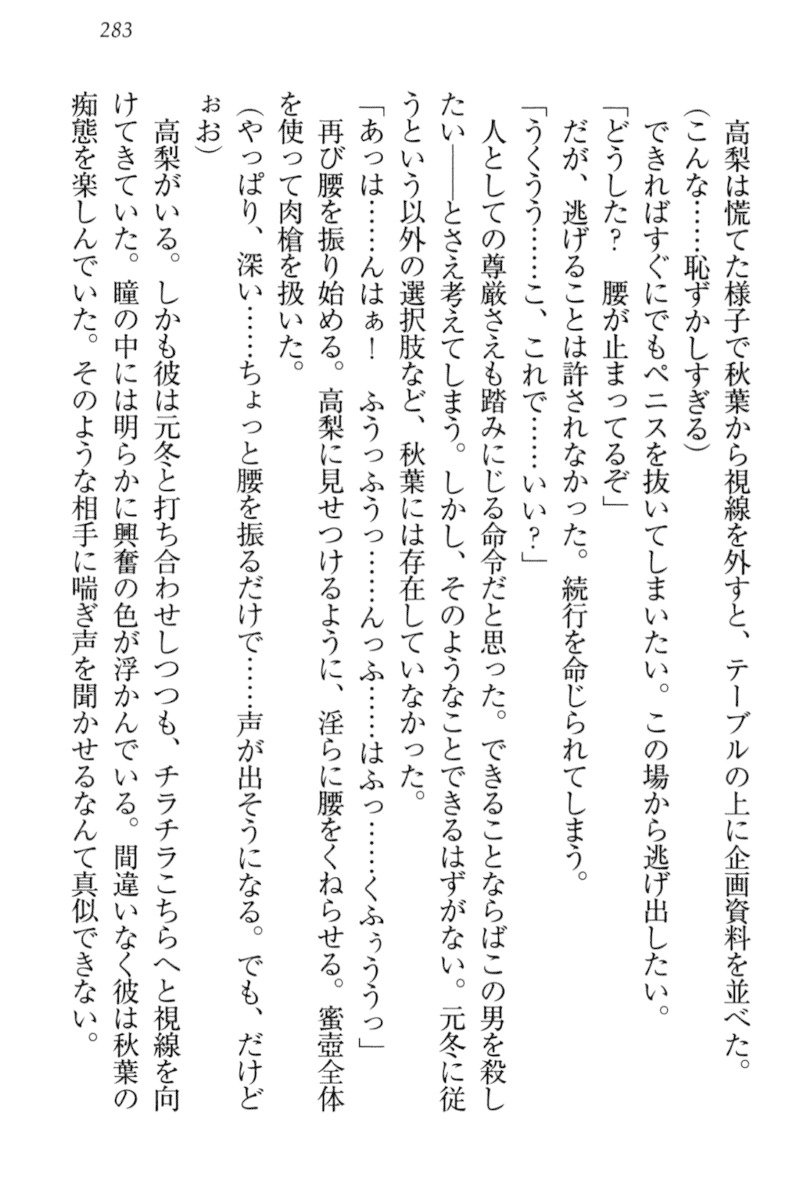 283
高梨は慌てた様子で秋葉から視線を外すと、テーブルの上に企画資料を並べた。
(こんな……恥ずかしすぎる)
できればすぐにでもペニスを抜いてしまいたい。この場から逃げ出したい。
「どうした？　腰が止まってるぞ」
だが、逃げることは許されなかった。続行を命じられてしまう。
「うくうう……こ、これで……いい？」
人としての尊厳さえも踏みにじる命令だと思った。できることならばこの男を殺し
たい――とさえ考えてしまう。しかし、そのようなことできるはずがない。元冬に従
うという以外の選択肢など、秋葉には存在していなかった。
「あっは……んはぁ！　ふうっふうっ……んっふ……はふっ……くふぅううっ」
再び腰を振り始める。高梨に見せつけるように、淫らに腰をくねらせる。蜜壺全体
を使って肉槍を扱いた。
(やっぱり、深い……ちょっと腰を振るだけで……声が出そうになる。でも、だけど
ぉお)
高梨がいる。しかも彼は元冬と打ち合わせしつつも、チラチラこちらへと視線を向
けてきていた。瞳の中には明らかに興奮の色が浮かんでいる。間違いなく彼は秋葉の
痴態を楽しんでいた。そのような相手に喘ぎ声を聞かせるなんて真似できない。